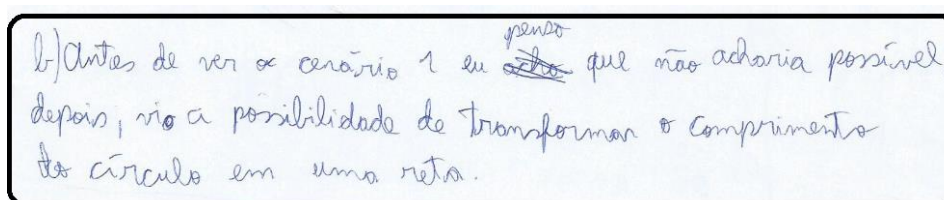 b) Antes de ver o cenário 1 eu penso que não acharia possível
depois, vio a possibilidade de transformar o comprimento
do círculo em uma reta.